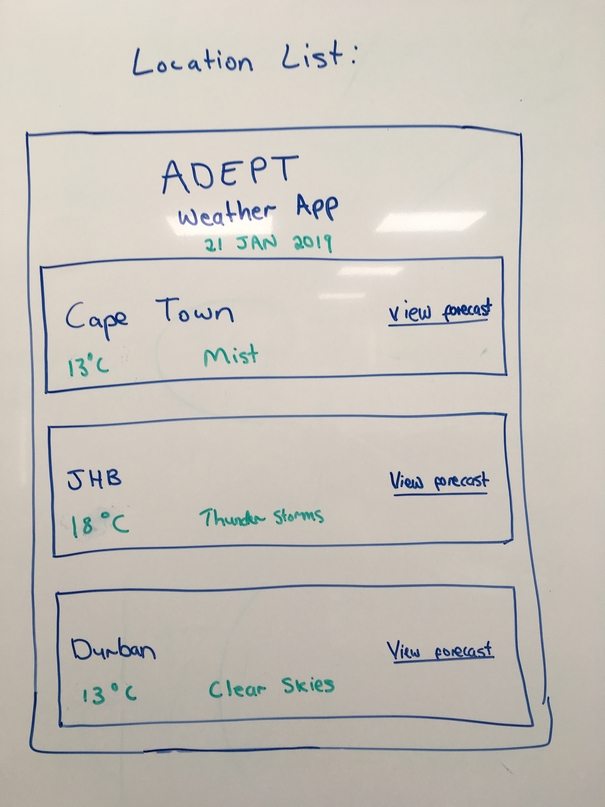 Location List:
ADEPT
Weather App
21 JAN 2019
Cape Town
View forecast
13°C Mist
JHB
View forecast
18°C Thunder Storms
Durban
View forecast
13°C Clear Skies